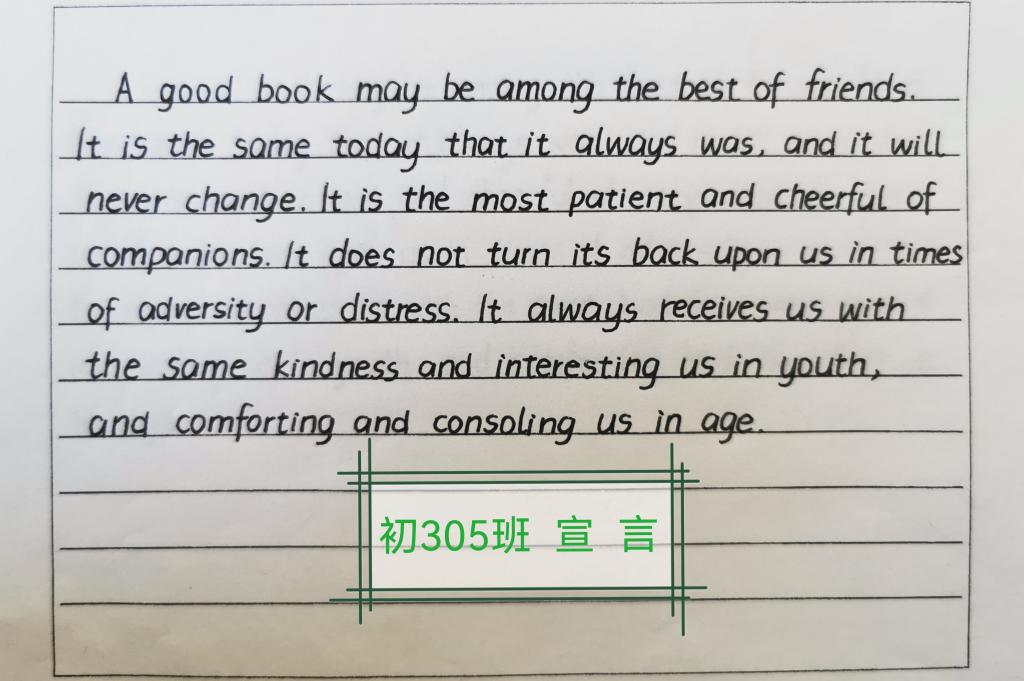 A good book may be among the best of friends.
It is the same today that it always was, and it will
never change. It is the most patient and cheerful of
companions. It does not turn its back upon us in times
of adversity or distress. It always receives us with
the same kindness and interesting us in youth,
and comforting and consoling us in age.
初305班 宣 言